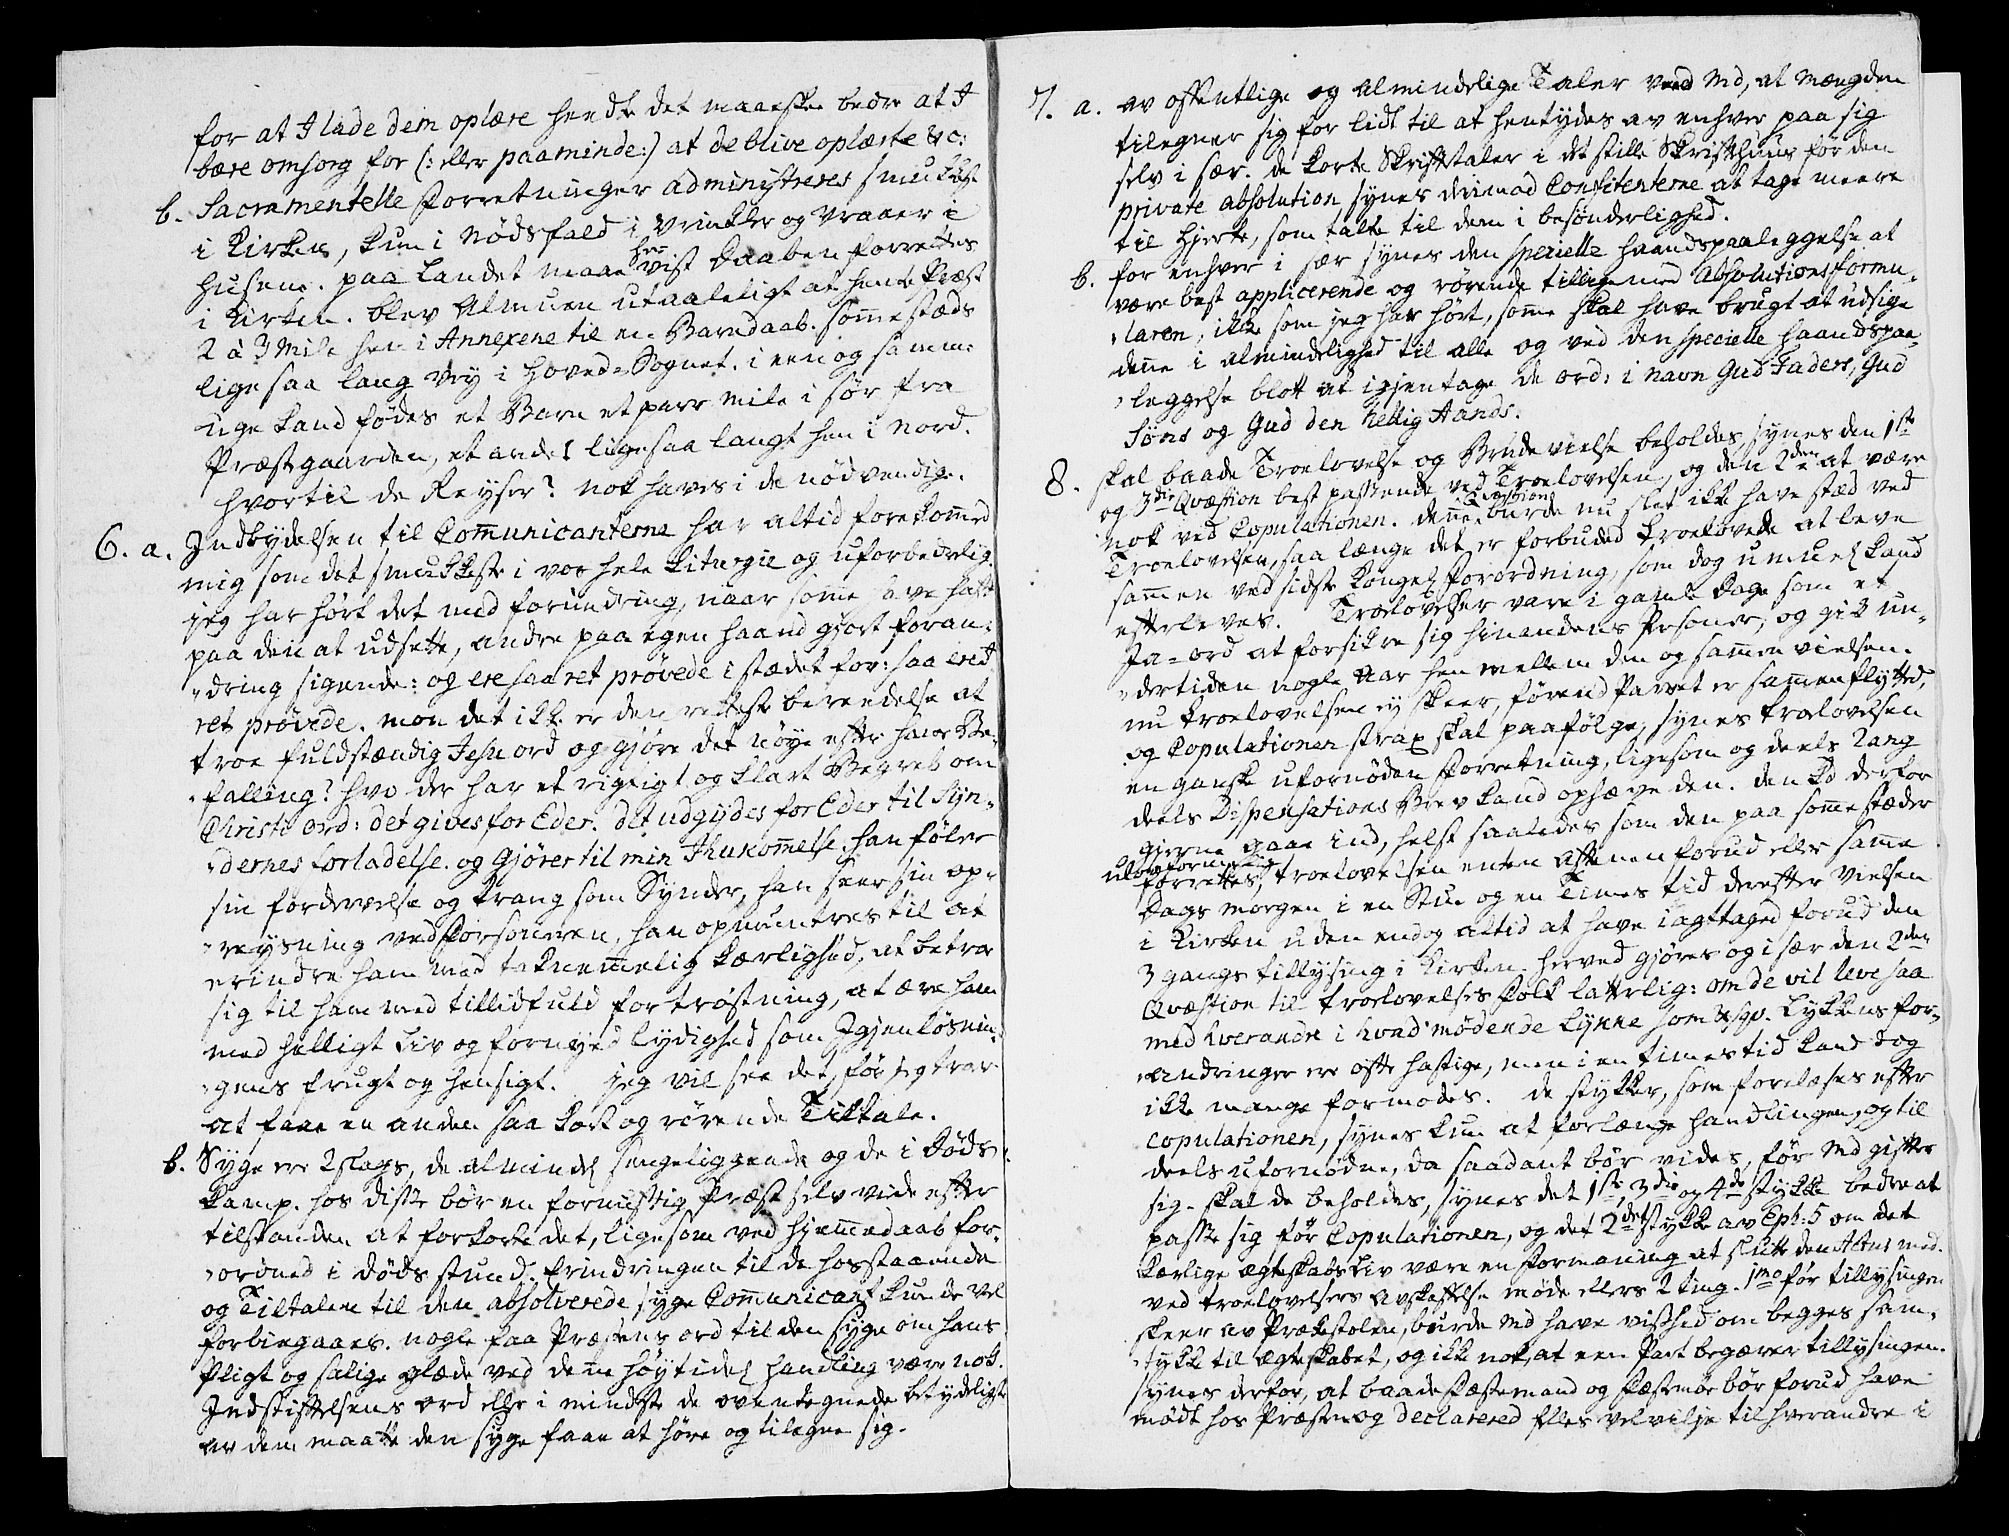 for at I lade dem oplære heedte det maaeskee bedre at I
bære omsorg for (: eller paaminde :) at de blive oplærte &c:
b. Sacramentelle Forretninger administreres smukkest
i Kirken, kun i Nødsfald i Vrinkler og Vraaer i
Husene. paa Landet maae her vist Daaben forrettes
i Kirken. blev Almuen utaaleligt at hente Præst
2 à 3 Mile hen i Annexene til en Barnedaab. somestæds
lige saa lang Vey i Hoved-Sognet. i een og samme
Uge kand fødes et Barn et parr Mile i sør fra
Præstegaarden, et andet ligesaa langt hen i Nord.
hvortil de Reyser? nok haves i de nødvendige.
6. a. Indbydelsen til Communicanterne har altid forekommed
mig som det smukkeste i vor hele Liturgie og uforbederlig
jeg har hørt det med forundring, naar some have hafft
paa den at udsette, andre paa egen haand gjort foran-
dring sigende: og ere saa ret prøvede i stædet for: saa ere I
ret prøvede. mon det ikke er den retteste beredelse at
troe fuldstændig Jesu ord og gjøre det nøye efter hans Be-
falling? hvo der har et rigtigt og klart Begreb om
Christi ord: det gives for Eder. det udgydes for Eder til Syn-
dernes forladelse. og Gjører til min Ihukommelse. han føler
sin fordervelse og trang som Synder, han seer sin op-
reysning ved Forsoneren, han opmuntres til at
erindre ham med taknemmelig kærlighed, at betroe
sig til ham med tillidfuld fortrøstning, at ære ham
med helligt Liv og fornyed lydighed som Igjenløsnin-
gens frugt og hensigt. jeg vil see det, før jeg troer
at faae en anden saa kort og rørende Tiltale.
b. Syge ere 2 slags, de almindel. sengeliggende og de i Døds
kamp. hos disse bør en fornuftig Præst selv vide efter
tilstanden at forkorte det, ligesom ved hjemmedaab for-
ordned i døds stund. Erindringen til de hosstaaende
og Tiltalen til den absolverede syge Communicant kunde vel
forbiegaaes. nogle faa Præstens ord til den syge om hans
Pligt og salige glæde ved denne høytidel. handling være nok.
Indstiftelsens ord eller i mindste de oventegnede betydeligste
av dem maatte den syge faae at høre og tilegne sig.
7. a. av offentlige og almindelige Taler veed Md, at mængden
tilegner sig for lidt til at hentydes av enhver paa sig
selv i sær. de korte Skriftetaler i det stille Skriftehuus før den
private absolution synes derimod Confitenterne at tage meere
til hjerte, som talte til dem i besønderlighed.
b. for enhver i sær synes den specielle haandspaaleggelse at
være best applicerende og rørende tillige med Absolutionsformu-
laren; ikke som jeg har hørt, some skal have brugt at udsige
denne i almindelighed til alle og ved den specielle haandspaa-
leggelse blott at igjentage de ord: i navn Gud Faders, Gud
Søns og Gud den hellig Aands.
8. skal baade Troelovelse og Brudevielse beholdes, synes den 1ste
og 3die Qvæstion best passende ved Troelovelsen, og den 2den at være
nok ved Copulationen. denne Qvæstion burde nu slet ikke have stæd ved
Troelovelsen, saa længe det er forbuded troelovede at leve
sammen ved sidste kongel. forordning, som dog umuel. kand
efterleves. Troelovelser vare i gamle dage som et
Ja-ord at forsikre sig hinandens Personer, og gik un-
dertiden nogle Aar hen mellem den og sammenvielsen.
nu troelovelsen ey skeer, førend Parret er sammenflytted,
og Copulationen strax skal paafølge, synes troelovelsen
en ganske ufornøden Forretning, ligesom og deels Rang
deels Dispensations Brev kand ophæve den. den kd derfor
gjerne gaae ind, helst saaledes som den paa somestæder
ulovformelig
forrettes, troelovelsen enten Aftenen forud eller samme
Dags morgen i en Stue og en Times tid derefter Vielsen
i Kirken uden endog altid at have iagttaged forud den
3 gangs tillysing i Kirken. herved gjøres og i sær den 2den
Qvæstion til troelovelses folk latterlig: om de vil leve saa
med hverandre i hvad mødende Lykke som &sqv. Lykkens for-
andringer ere ofte hastige, men i en times tid kand dog
ikke mange formodes. de stykker, som forelæses efter
copulationen, synes kun at forlænge handlingen, og til
deels ufornødne, da saadant bør vides, før Md gifter
sig. skal de beholdes, synes det 1ste, 3die og 4de stykke bedre at
passe sig før Copulationen, og det 2det stykke av Eph: 5 om det
kærlige ægteskabs Liv være en formaning at slutte den Actus med.
ved troelovelsers avskaffelse møde ellers 2 ting. 1mo før tillysingen
skeer av Prækestolen, burde Md have visshed om begges sam-
tykke til ægteskabet, og ikke nok, at een Part begærer tillysingen.
synes derfor, at baade fæstemand og fæstemøe bør forud have
mødt hos Præsten og declarered selles velvilje til hverandre i